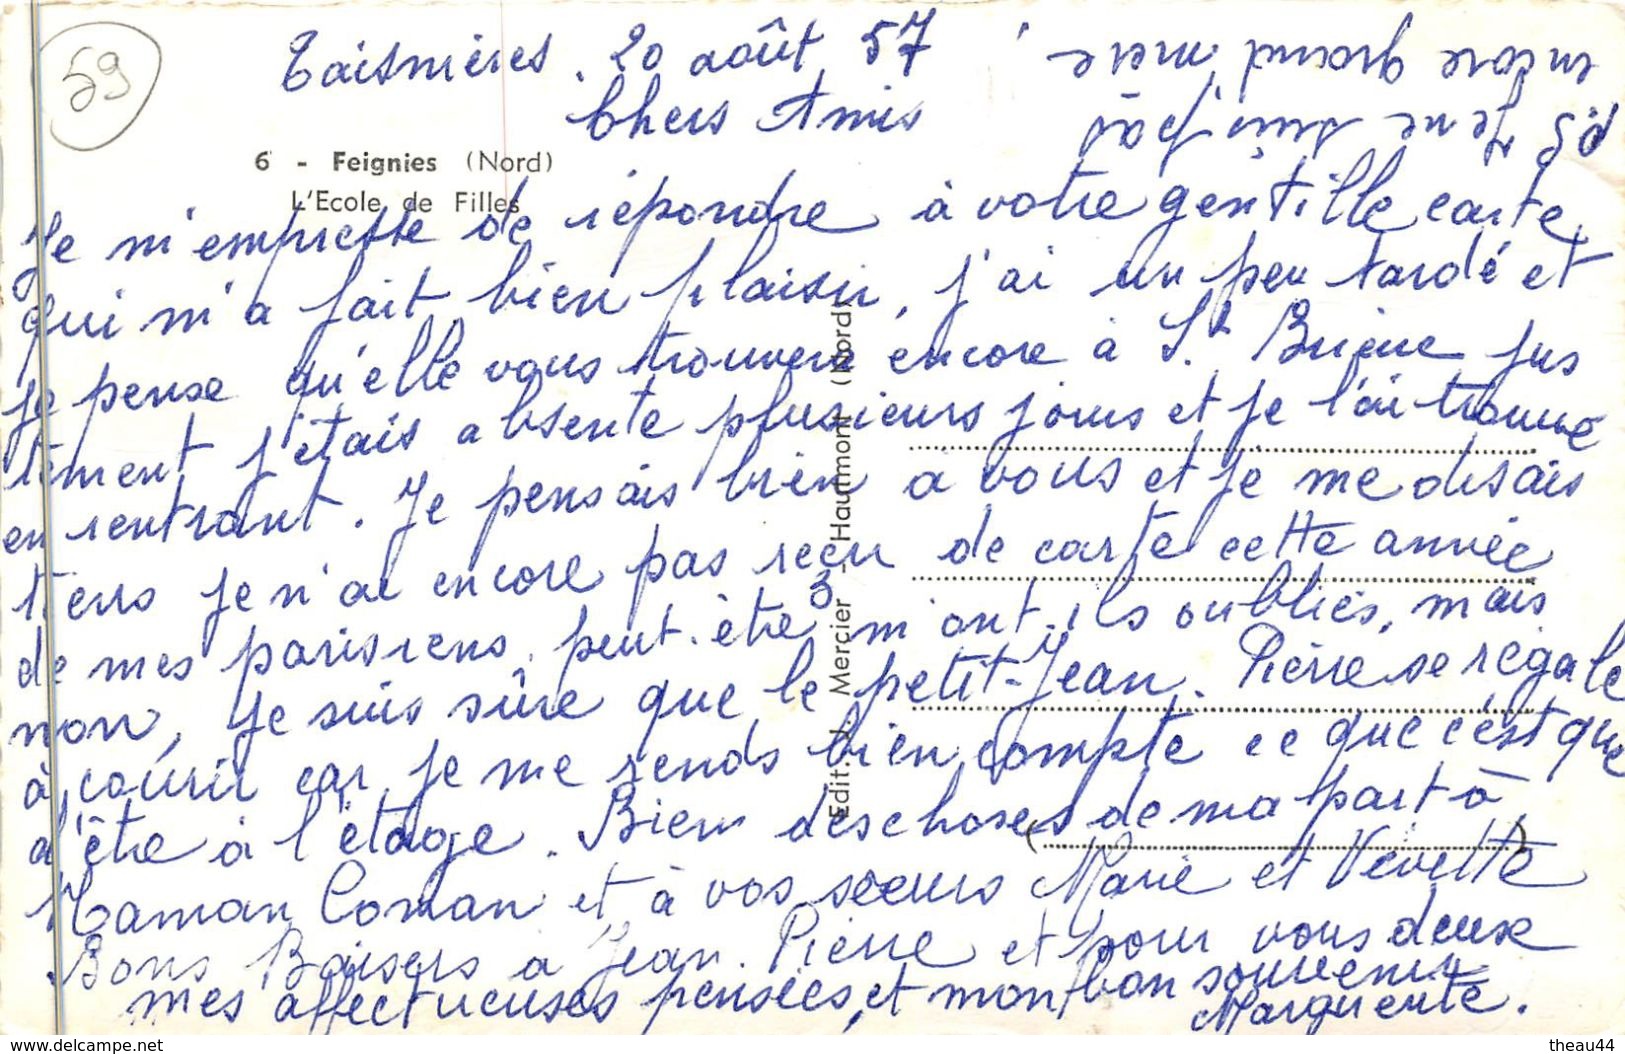 59
Taisnières. 20 août 57
Chers Amis
6 - Feignies (Nord)
L'Ecole de Filles
Je m'empresse de répondre à votre gentille carte
qui m'a fait bien plaisir, j'ai un peu tardé et
je pense qu'elle vous trouvera encore à St Brieuc jus
tement j'étais absente plusieurs jours et je l'ai trouvé
en rentrant. Je pensais bien à vous et je me disais
tiens je n'ai encore pas reçu de carte cette année
de mes parisiens, peut-être m'ont-ils oubliés, mais
non, je suis sûre que le petit-Jean. Pierre se régale
à courir car je me rends bien compte ce que c'est que
d'être à l'étage. Bien des choses de ma part à
Maman Coman et à vos soeurs Marie et Vévette
Bons Baisers a Jean. Pierre et pour vous deux
mes affectueuses pensées, et mon bon souvenir
Marguerite.
P.S Je ne suis pas
encore grand mère !
Edit. J. Mercier - Haumont (Nord)
www.delcampe.net
theau44